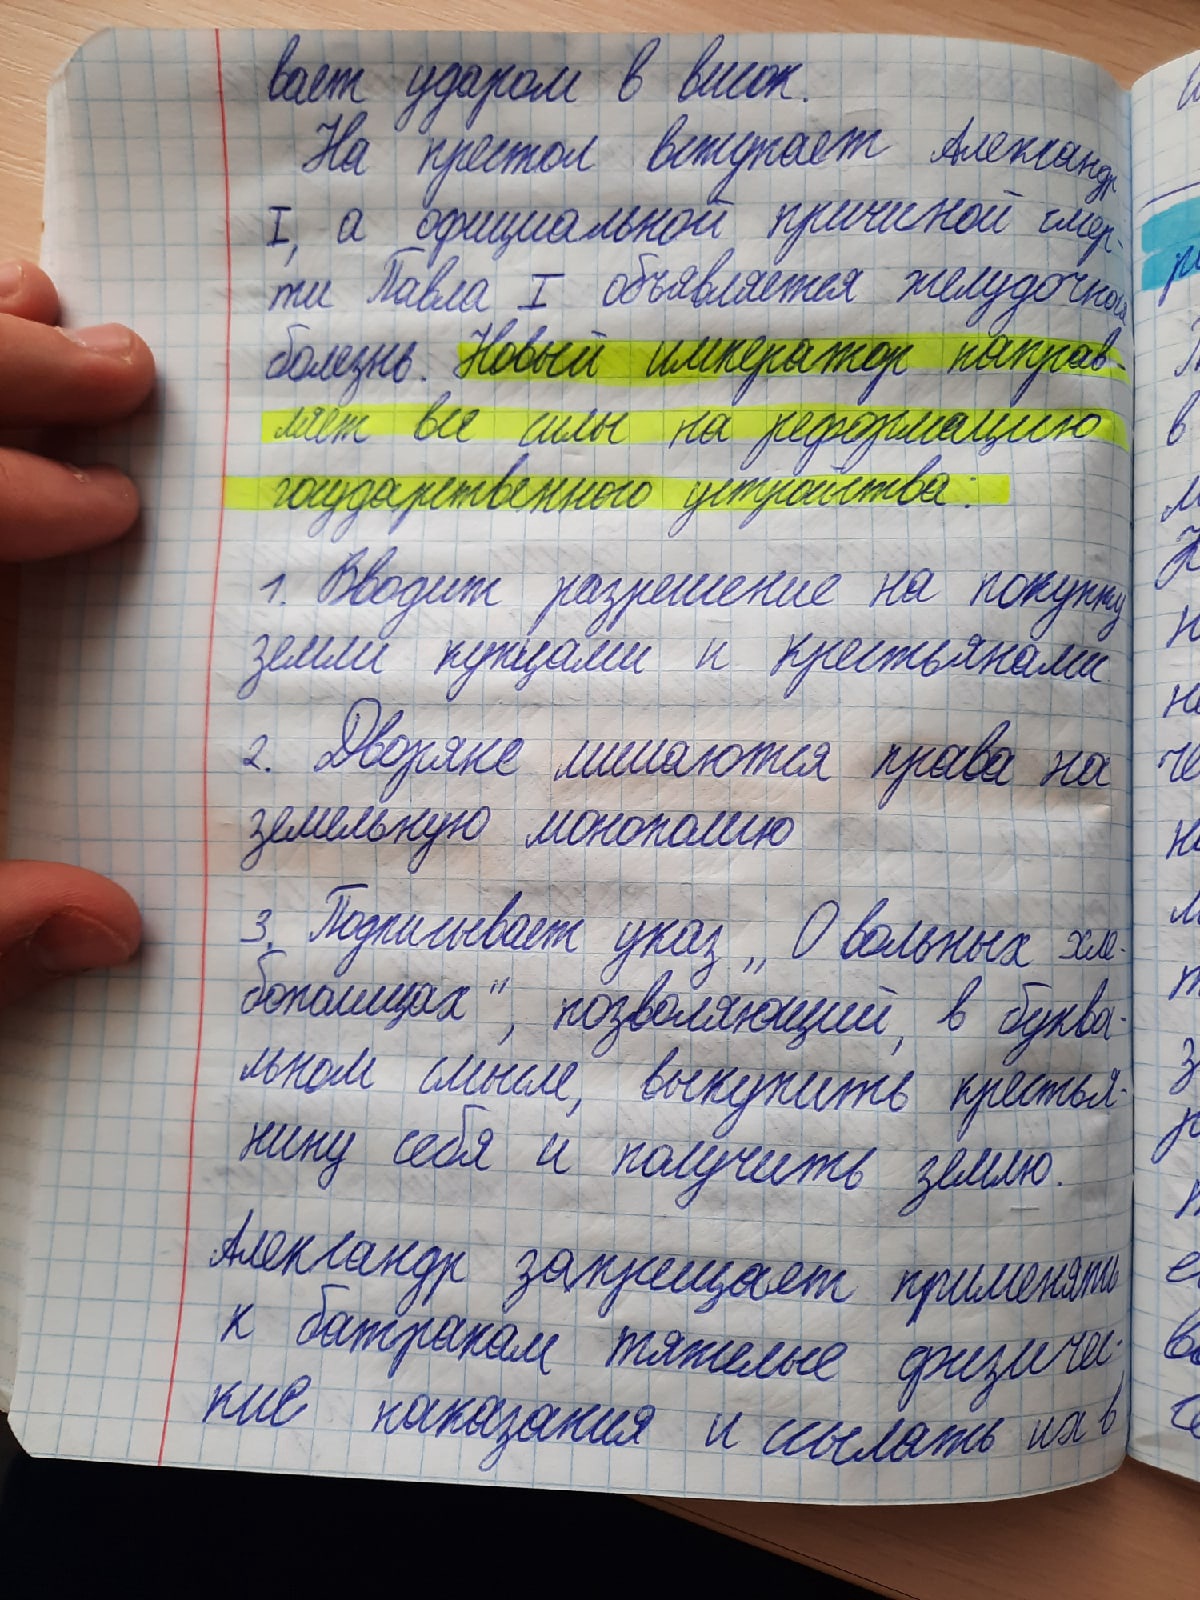 вает ударом в висок.
На престол вступает Александр
I, а официальной причиной смер-
ти Павла I объявляется желудочная
болезнь. Новый император направ-
ляет все силы на реформацию
государственного устройства:
1. Вводит разрешение на покупку
земли купцами и крестьянами
2. Дворяне лишаются права на
земельную монополию
3. Подписывает указ „О вольных хле-
бопашцах", позволяющий, в буква-
льном смысле, выкупить крестья-
нину себя и получить землю.
Александр запрещает применять
к батракам тяжелые физичес-
кие наказания и ссылать их в